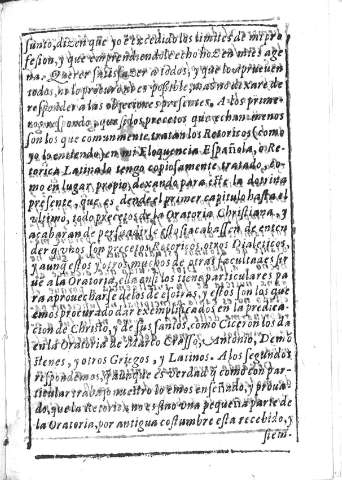 sunto, dizen que yo è excedido los limites de mi pro
fesion, y que emprendiendo le echo hoz en mies age
na. Querer satisfazer a todos, y que lo aprueuen
todos, no lo procuro no es possible, mas no dexare de
responder a las objeciones presentes. A los prime-
ros respondo, que los precetos que echan menos
son los que comunmente tratan los Retoricos (como
yo lo entiendo) en mi Eloquencia Española, o Re-
torica Latina lo tengo copiosamente tratado, co-
mo en lugar propio, dexando para este la dotrina
presente, que es, dende el primer capitulo hasta el
vltimo, todo precetos de la Oratoria Christiana, y
acabaran de persuadirse si acabassen de enten
der q̃ vnos son precetos Retoricos, otros Dialeticos,
y aunq̃ estos y otros muchos de otras facultades sir
ue a la Oratoria, ella entre los tiene particulares pa
ra aprouecharse de los de essotras, y estos son los que
emos procurado dar exemplificados en la predica-
cion de Christo, y de sus santos, como Ciceron los da
en la Oratoria de Marco Crasso, Antonio, Demo
stenes, y otros Griegos, y Latinos. A los segundos
respondemos, q̃ aunque es verdad q̃ como con par-
ticular trabajo nuestro lo emos enseñado, y proua
do, que la Retorica no es sino vna pequeña parte de
la Oratoria, por antigua costumbre esta recebido, y
siem-